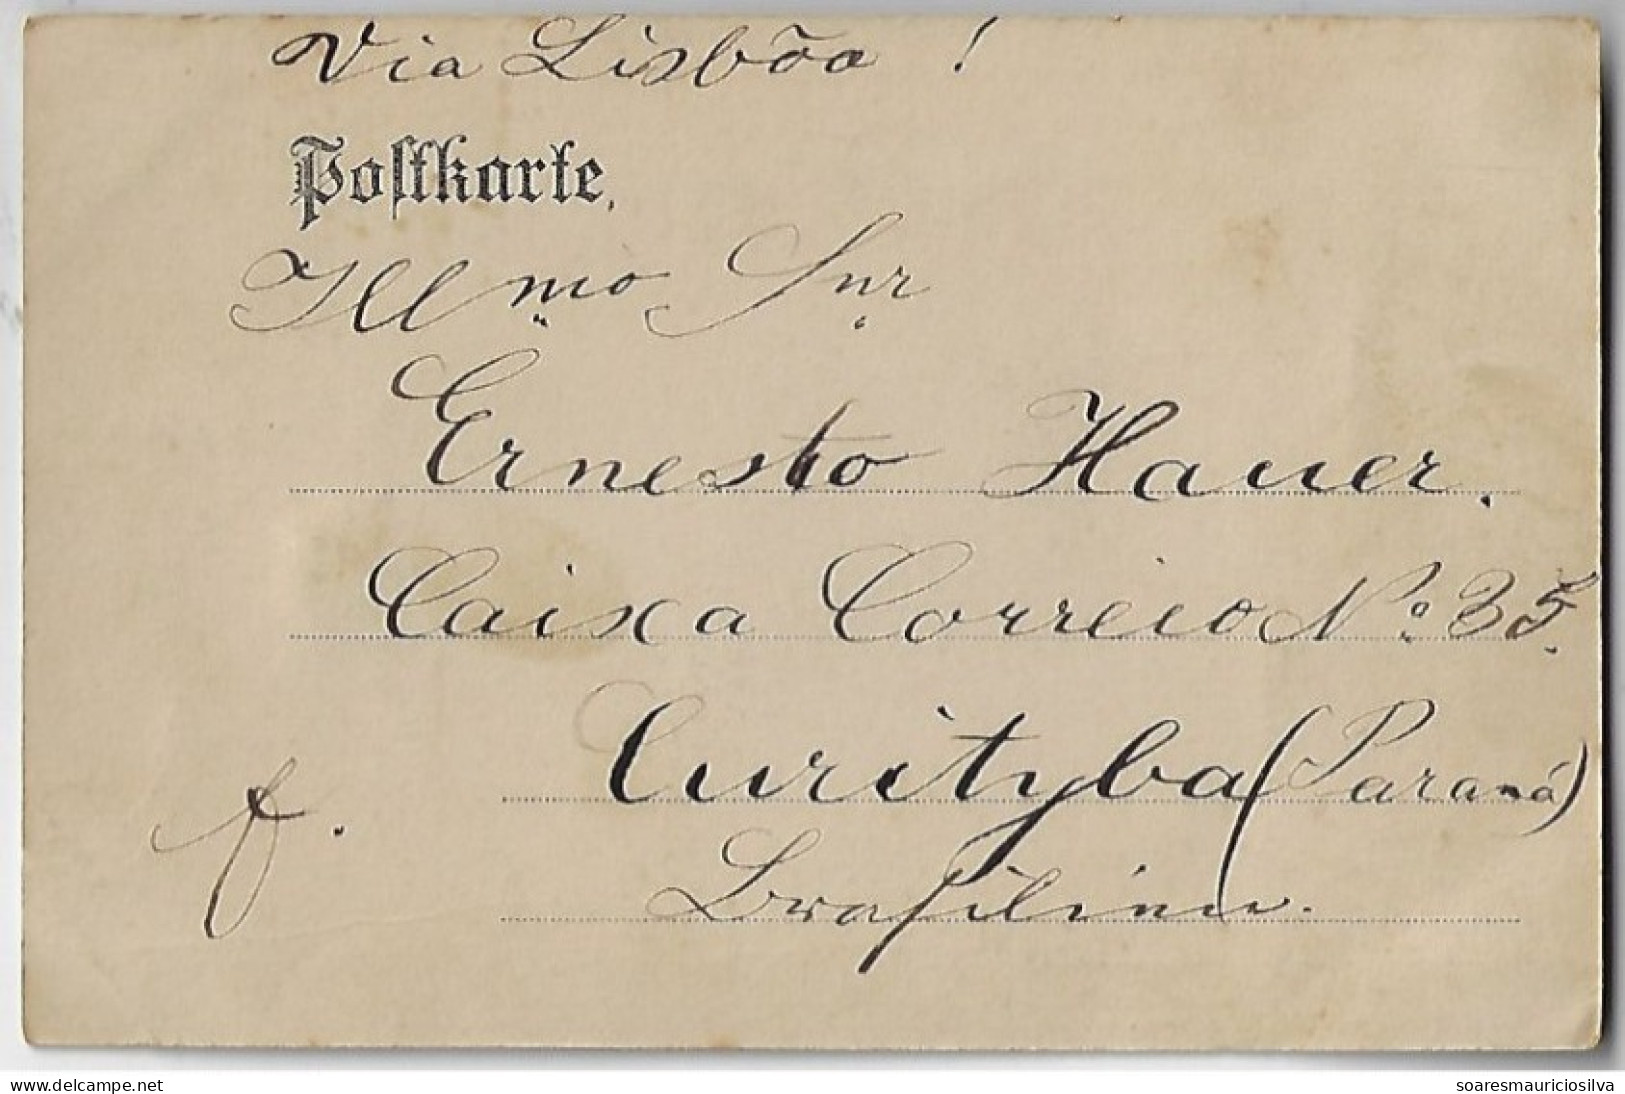 Via Lisbõa !
Postkarte.
Illmo Snr
Ernesto Hauer.
Caixa Correio No 35.
Curityba (Paraná)
f.
Brasilien.
www.delcampe.net
soaresmauriciosilva